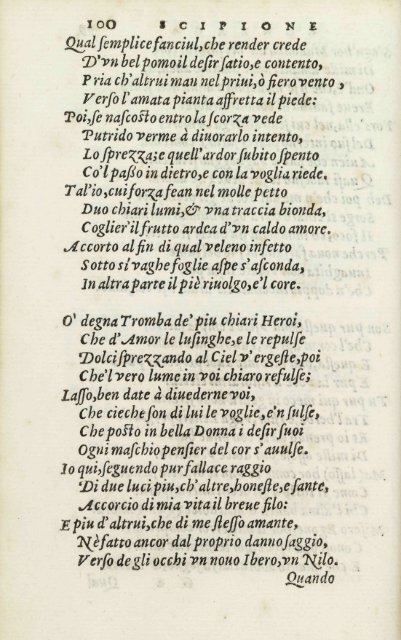 100 SCIPIONE
Qual ſemplice fanciul, che render crede
D'vn bel pomo il deſir ſatio, e contento,
Pria ch'altrui man nel priui, ò fiero vento,
Verſo l'amata pianta affretta il piede:
Poi, ſe naſcoſto entro la ſcorza vede
Putrido verme à diuorarlo intento,
Lo ſprezza; e quell'ardor ſubito ſpento
Co'l paßo in dietro, e con la voglia riede.
Tal'io, cui forza fean nel molle petto
Duo chiari lumi, & vna traccia bionda,
Coglier'il frutto ardea d'vn caldo amore.
Accorto al fin di qual veleno infetto
Sotto sì vaghe foglie aſpe s'aſconda,
In altra parte il piè riuolgo, e'l core.
O' degna Tromba de' piu chiari Heroi,
Che d'Amor le luſinghe, e le repulſe
Dolci ſprezzando al Ciel v'ergeſte, poi
Che'l vero lume in voi chiaro refulſe;
Laſſo, ben date à diuederne voi,
Che cieche ſon di lui le voglie, e'nſulſe,
Che poſto in bella Donna i deſir ſuoi
Ogni maſchio penſier del cor s'auulſe.
Io qui, ſeguendo pur fallace raggio
Di due luci piu, ch'altre, honeſte, e ſante,
Accorcio di mia vita il breue filo:
E piu d'altrui, che di me ſteſſo amante,
Nè fatto ancor dal proprio danno ſaggio,
Verſo de gli occhi vn nouo Ibero, vn Nilo.
Quando